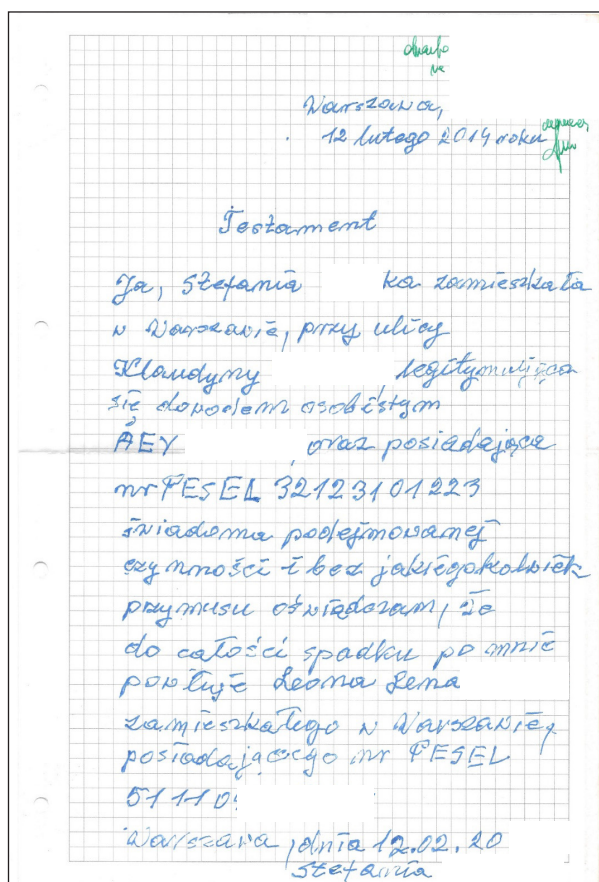 Warszawa,
12 lutego 2014 roku
Testament
Ja, Stefania ka zamieszkała
w Warszawie, przy ulicy
Klaudyny legitymująca
się dowodem osobistym
AEY oraz posiadająca
nr PESEL 32123101223
świadoma podejmowanej
czynności i bez jakiegokolwiek
przymusu oświadczam, że
do całości spadku po mnie
powołuję Leona
zamieszkałego w Warszawie,
posiadającego nr PESEL
51110
Warszawa, dnia 12.02.20
Stefania